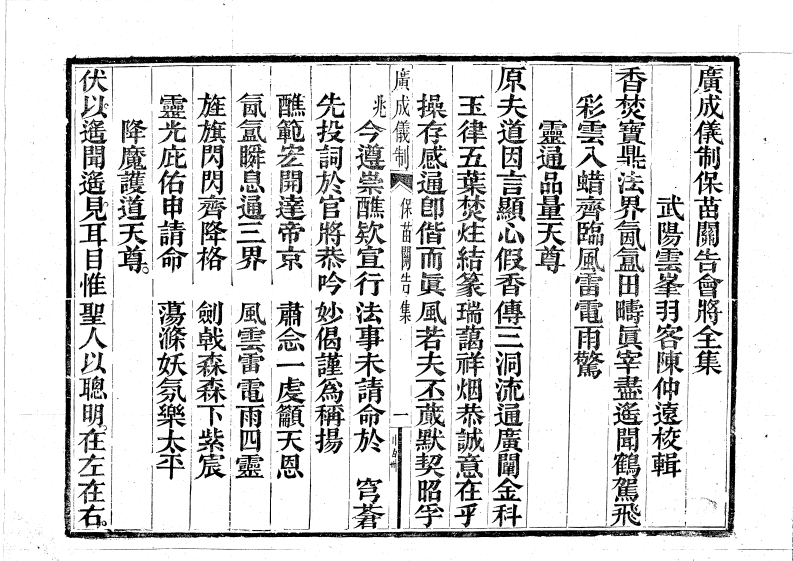 廣成儀制保苗關告會將全集
武陽雲峯羽客陳仲遠校輯
香焚寶鼎法界氤氳田疇眞宰盡遙聞鶴駕飛
彩雲入蜡齊臨風雷電雨驚
靈通品量天尊
原夫道因言顯心假香傳三洞流通廣闡金科
玉律五葉焚炷結篆瑞藹祥烟恭誠意在乎
操存感通卽偕而眞風若夫丕蕆默契昭乎
兆
廣成儀制 保苗關告集 一
今遵崇醮欵宣行 法事未請命於 穹蒼
先投詞於官將恭吟 妙偈謹為稱揚
醮範宏開達帝京 肅念一虔籲天恩
氤氳瞬息通三界 風雲雷電雨四靈
旌旗閃閃齊降格 劍戟森森下紫宸
靈光庇佑申請命 蕩滌妖氛樂太平
降魔護道天尊。
伏以遙聞遙見耳目惟聖人以聰明。在左在右。